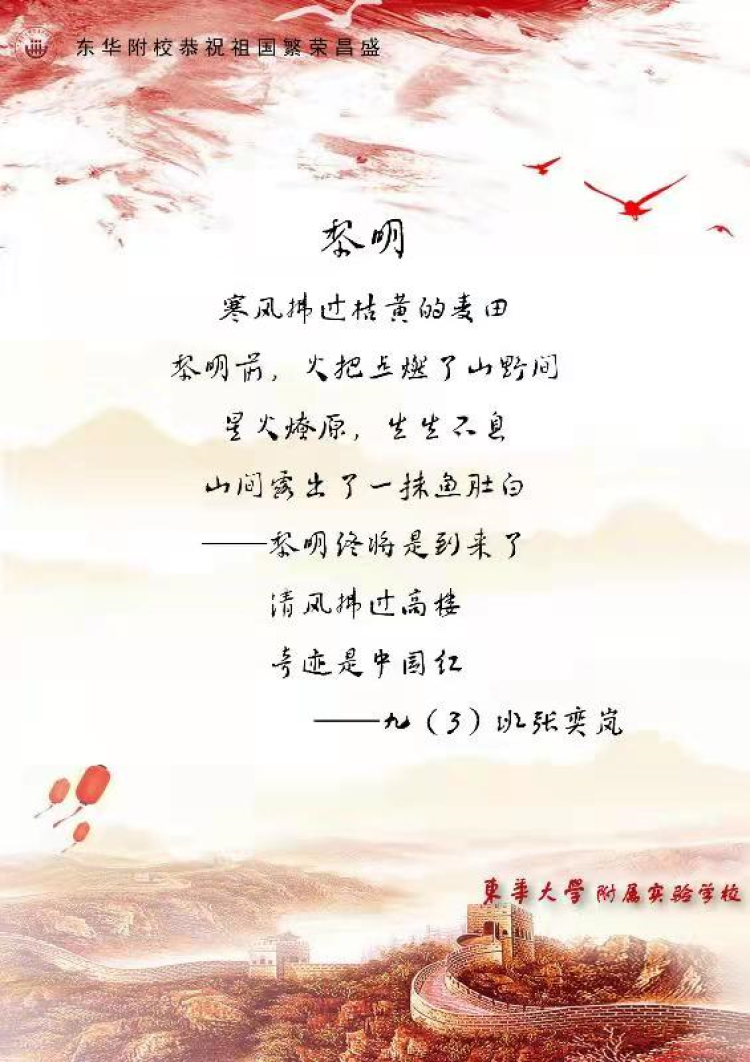 东华附校恭祝祖国繁荣昌盛
黎明
寒风拂过枯黄的麦田
黎明前，火把点燃了山野间
星火燎原，生生不息
山间露出了一抹鱼肚白
——黎明终将是到来了
清风拂过高楼
奇迹是中国红
——九（3）班张奕岚
東華大學附属实验学校